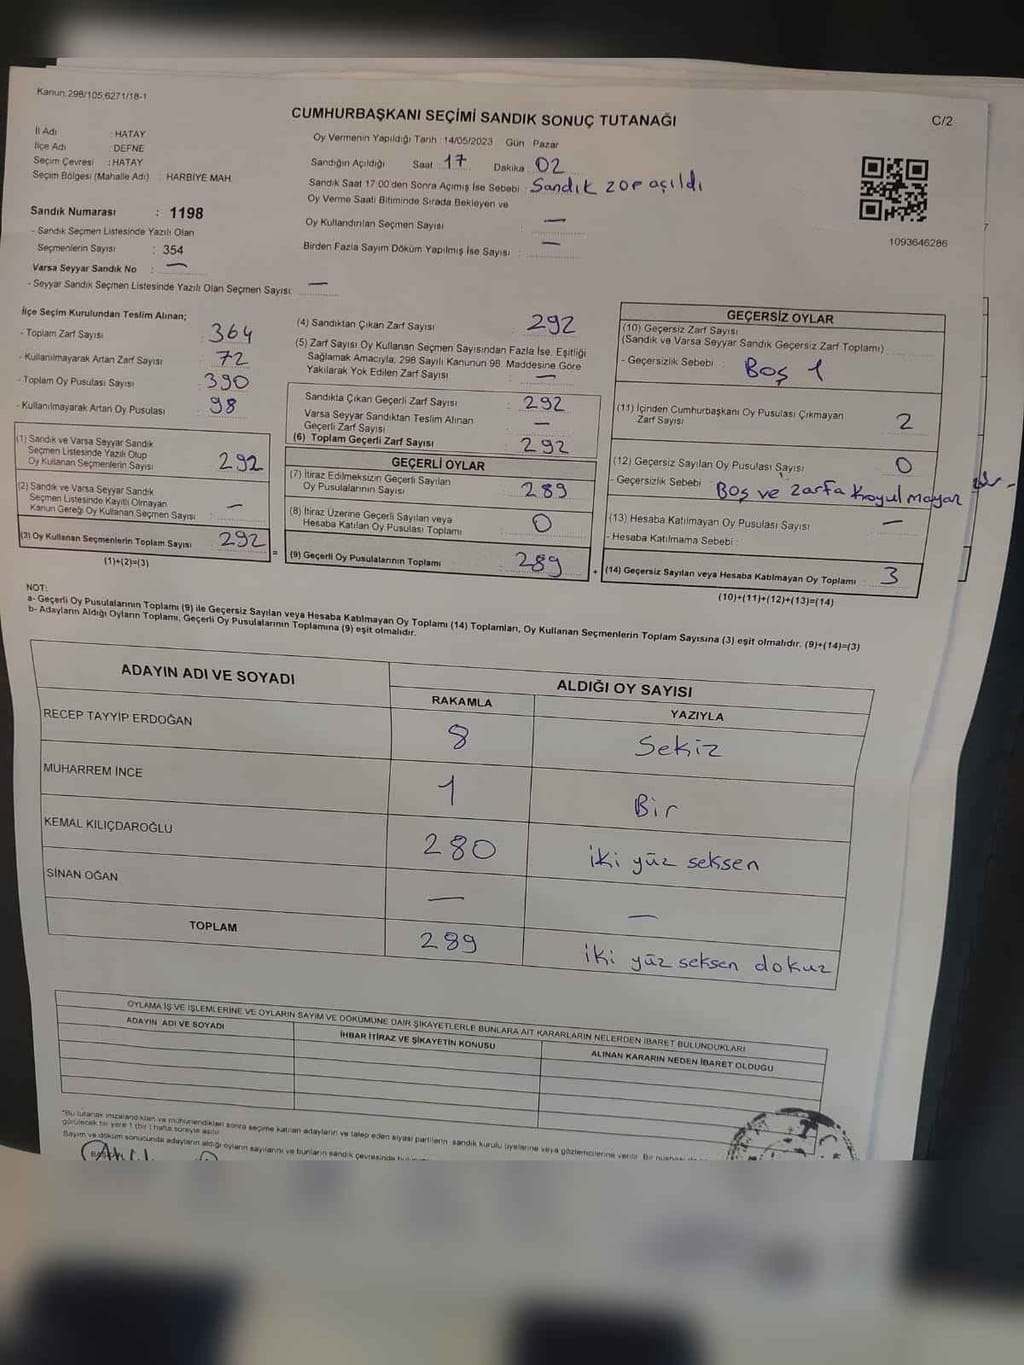 Kanun:298/105,6271/18-1
CUMHURBAŞKANI SEÇİMİ SANDIK SONUÇ TUTANAĞI
C/2
İl Adı : HATAY
İlçe Adı : DEFNE
Seçim Çevresi : HATAY
Seçim Bölgesi (Mahalle Adı) : HARBİYE MAH.
Oy Vermenin Yapıldığı Tarih :14/05/2023 Gün Pazar
Sandığın Açıldığı Saat : 17 Dakika : 02
Sandık Saat 17:00'den Sonra Açılmış İse Sebebi : Sandık zor açıldı
Oy Verme Saati Bitiminde Sırada Bekleyen ve
Oy Kullandırılan Seçmen Sayısı : —
Birden Fazla Sayım Döküm Yapılmış İse Sayısı : —
1093646286
Sandık Numarası : 1198
- Sandık Seçmen Listesinde Yazılı Olan
Seçmenlerin Sayısı : 354
Varsa Seyyar Sandık No : —
- Seyyar Sandık Seçmen Listesinde Yazılı Olan Seçmen Sayısı: —
İlçe Seçim Kurulundan Teslim Alınan;
- Toplam Zarf Sayısı : 364
- Kullanılmayarak Artan Zarf Sayısı : 72
- Toplam Oy Pusulası Sayısı : 390
- Kullanılmayarak Artan Oy Pusulası : 98
(1) Sandık ve Varsa Seyyar Sandık
Seçmen Listesinde Yazılı Olup
Oy Kullanan Seçmenlerin Sayısı : 292
(2) Sandık ve Varsa Seyyar Sandık
Seçmen Listesinde Kayıtlı Olmayan
Kanun Gereği Oy Kullanan Seçmen Sayısı : —
(3) Oy Kullanan Seçmenlerin Toplam Sayısı : 292
(1)+(2)=(3)
(4) Sandıktan Çıkan Zarf Sayısı : 292
(5) Zarf Sayısı Oy Kullanan Seçmen Sayısından Fazla İse, Eşitliği
Sağlamak Amacıyla; 298 Sayılı Kanunun 98. Maddesine Göre
Yakılarak Yok Edilen Zarf Sayısı : —
Sandıkta Çıkan Geçerli Zarf Sayısı : 292
Varsa Seyyar Sandıktan Teslim Alınan
Geçerli Zarf Sayısı : —
(6) Toplam Geçerli Zarf Sayısı : 292
=
GEÇERLİ OYLAR
(7) İtiraz Edilmeksizin Geçerli Sayılan
Oy Pusulalarının Sayısı : 289
(8) İtiraz Üzerine Geçerli Sayılan veya
Hesaba Katılan Oy Pusulası Toplamı : 0
(9) Geçerli Oy Pusulalarının Toplamı : 289
+
GEÇERSİZ OYLAR
(10) Geçersiz Zarf Sayısı
(Sandık ve Varsa Seyyar Sandık Geçersiz Zarf Toplamı)
- Geçersizlik Sebebi : Boş 1
(11) İçinden Cumhurbaşkanı Oy Pusulası Çıkmayan
Zarf Sayısı : 2
(12) Geçersiz Sayılan Oy Pusulası Sayısı : 0
- Geçersizlik Sebebi : Boş ve zarfa koyulmayan
(13) Hesaba Katılmayan Oy Pusulası Sayısı : —
- Hesaba Katılmama Sebebi :
(14) Geçersiz Sayılan veya Hesaba Katılmayan Oy Toplamı : 3
(10)+(11)+(12)+(13)=(14)
NOT:
a- Geçerli Oy Pusulalarının Toplamı (9) ile Geçersiz Sayılan veya Hesaba Katılmayan Oy Toplamı (14) Toplamları, Oy Kullanan Seçmenlerin Toplam Sayısına (3) eşit olmalıdır. (9)+(14)=(3)
b- Adayların Aldığı Oyların Toplamı, Geçerli Oy Pusulalarının Toplamına (9) eşit olmalıdır.
ADAYIN ADI VE SOYADI
ALDIĞI OY SAYISI
RAKAMLA YAZIYLA
RECEP TAYYİP ERDOĞAN 8 Sekiz
MUHARREM İNCE 1 Bir
KEMAL KILIÇDAROĞLU 280 iki yüz seksen
SİNAN OĞAN — —
TOPLAM 289 iki yüz seksen dokuz
OYLAMA İŞ VE İŞLEMLERİNE VE OYLARIN SAYIM VE DÖKÜMÜNE DAİR ŞİKAYETLERLE BUNLARA AİT KARARLARIN NELERDEN İBARET BULUNDUKLARI
ADAYIN ADI VE SOYADI İHBAR İTİRAZ VE ŞİKAYETİN KONUSU ALINAN KARARIN NEDEN İBARET OLDUĞU
*Bu tutanak imzalandıktan ve mühürlendikten sonra seçime katılan adayların ve talep eden siyasi partilerin sandık kurulu üyelerine veya gözlemcilerine verilir. Bir nüshası da
görülecek bir yere 1 (bir) hafta süreyle asılır.
Sayım ve döküm sonucunda adayların aldığı oyların sayılarını ve bunların sandık çevresinde
BAŞKAN